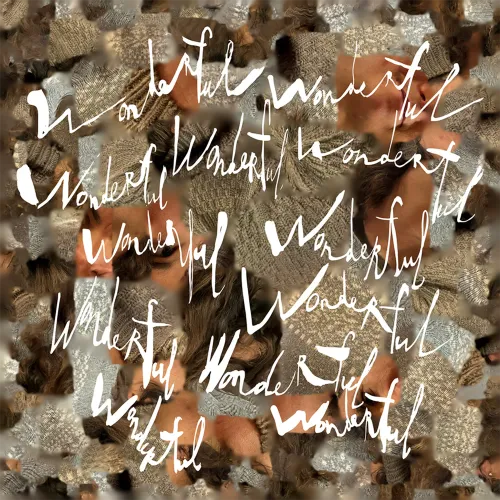 Wonderful Wonderful
Wonderful Wonderful Wonderful
Wonderful Wonderful
Wonderful Wonderful
Wonderful
Wonderful Wonderful